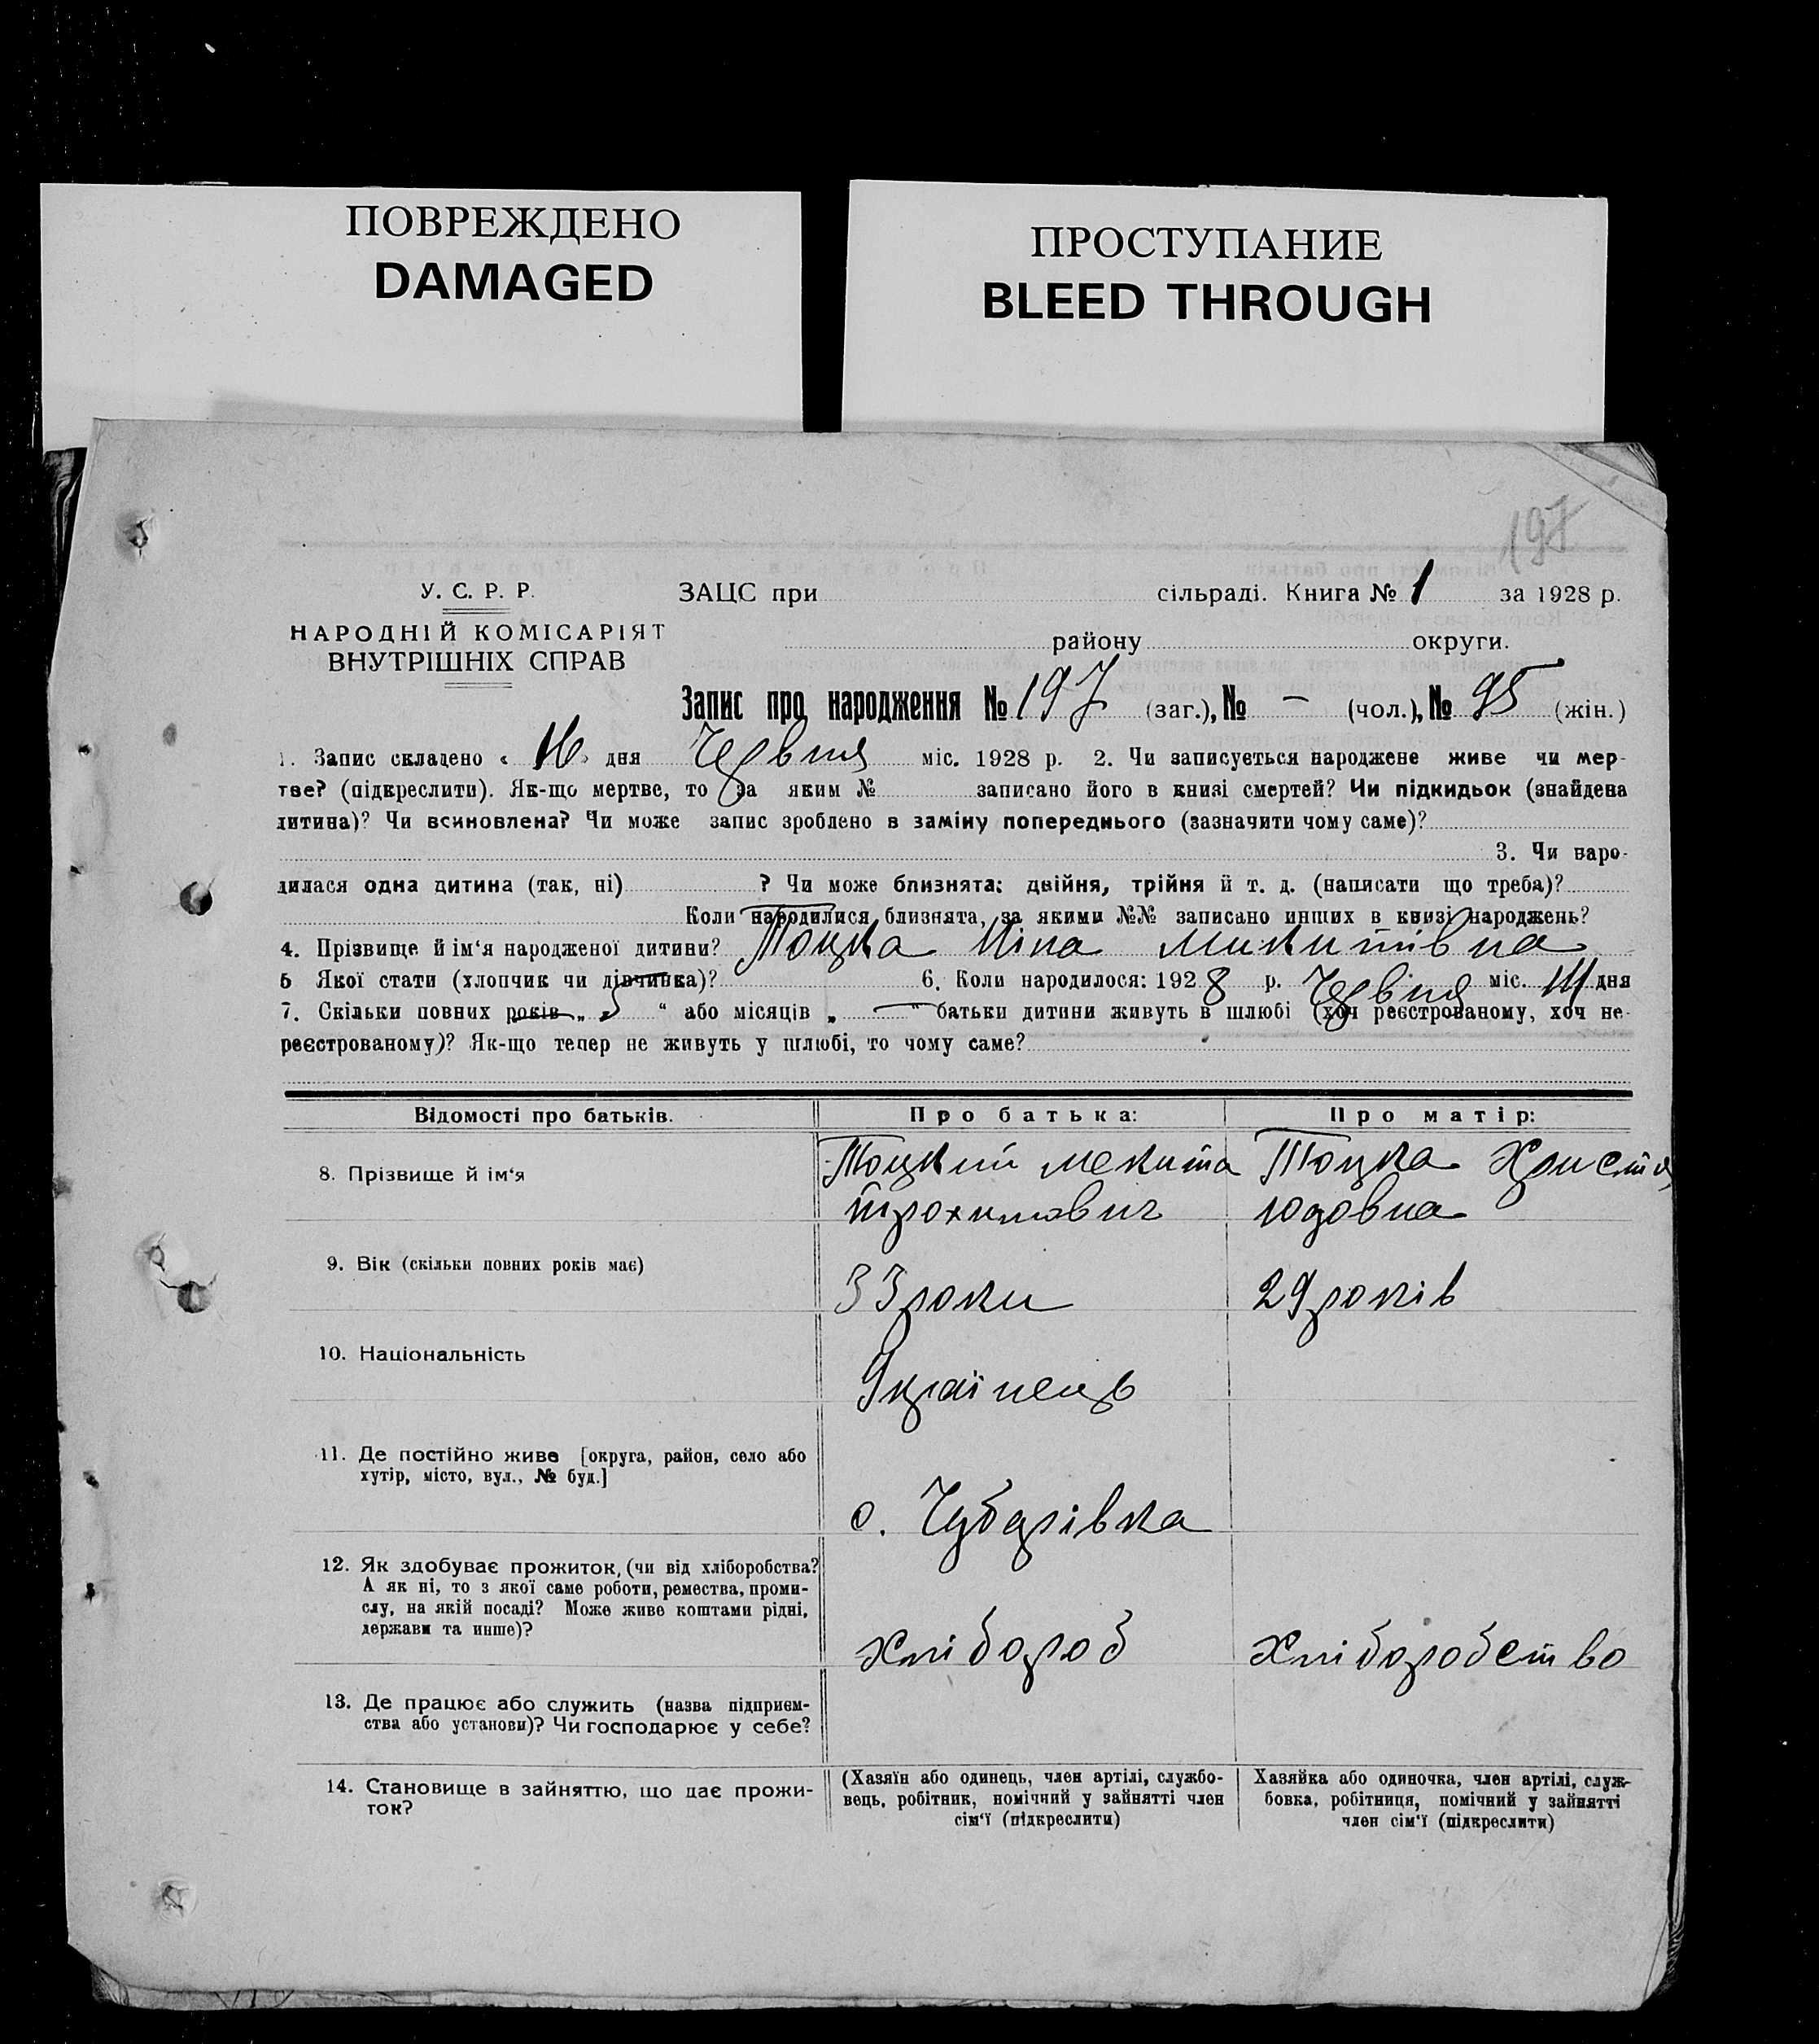 ПОВРЕЖДЕНО
DAMAGED
ПРОСТУПАНИЕ
BLEED THROUGH
197
У. С. Р. Р.
НАРОДНІЙ КОМІСАРІЯТ
ВНУТРІШНІХ СПРАВ
ЗАЦС при сільраді. Книга № 1 за 1928 р.
району округи.
Запис про народження № 197 (заг.), № — (чол.), № 95 (жін.)
1. Запис складено « 16 » дня Червня міс. 1928 р. 2. Чи записується народжене живе чи мер-
тве? (підкреслити). Як-що мертве, то за яким № записано його в книзі смертей? Чи підкидьок (знайдена
дитина)? Чи всиновлена? Чи може запис зроблено в заміну попереднього (зазначити чому саме)?
3. Чи наро-
дилася одна дитина (так, ні) ? Чи може близнята: двійня, трійня й т. д. (написати що треба)?
Коли народилися близнята, за якими №№ записано инших в книзі народжень?
4. Прізвище й ім‘я народженої дитини? Тоцка Ніна Микитівна
5 Якої стати (хлопчик чи дівчинка)? 6. Коли народилося: 1928 р. Червня міс. дня
7. Скільки повних років „ “ або місяців „ — “ батьки дитини живуть в шлюбі (хоч реєстрованому, хоч не-
реєстрованому)? Як-що тепер не живуть у шлюбі, то чому саме?
Відомості про батьків. Про батька: Про матір:
8. Прізвище й ім‘я Тоцкий Мекита Тоцка Христя
трохимович юдовна
9. Вік (скільки повних років має) 33 роки 29 років
10. Національність Українець
11. Де постійно живе [округа, район, село або
хутір, місто, вул., № буд.]
с. Чубарівка
12. Як здобуває прожиток, (чи від хліборобства?
А як ні, то з якої саме роботи, ремества, проми-
слу, на якій посаді? Може живе коштами рідні,
держави та инше)?
Хлібороб Хліборобство
13. Де працює або служить (назва підприєм-
ства або установи)? Чи господарює у себе?
14. Становище в зайняттю, що дає прожи-
ток?
(Хазяїн або одинець, член артілі, службо-
вець, робітник, помічний у зайнятті член
сім‘ї (підкреслити)
Хазяйка або одиночка, член артілі, служ-
бовка, робітниця, помічний у зайнятті
член сім‘ї (підкреслити)